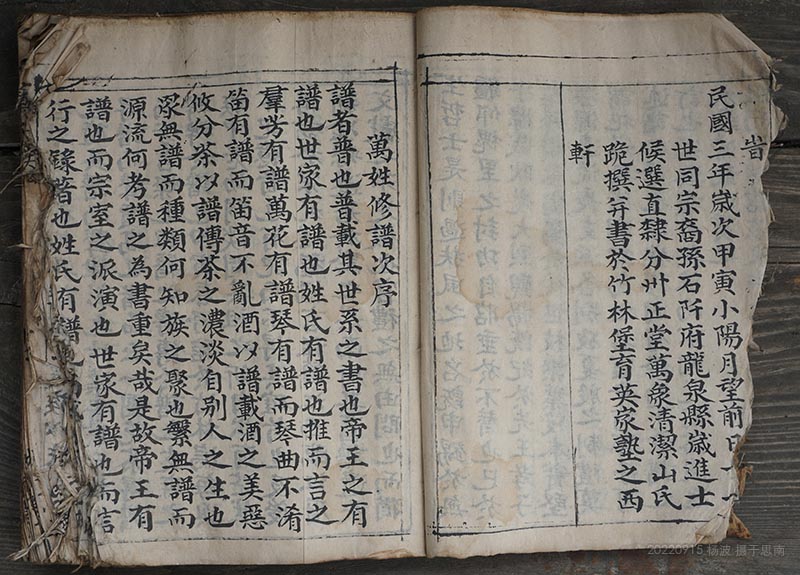 旹
民國三年歲次甲寅小陽月望前日
世同宗裔孫石阡府龍泉縣歲進士
候選直隸分州正堂萬象清潔山氏
跪撰并書於竹林堡育英家塾之西
軒
萬姓修譜次序
譜者普也普載其世系之書也帝王之有
譜也世家有譜也姓氏有譜也推而言之
羣芳有譜萬花有譜琴有譜而琴曲不淆
笛有譜而笛音不亂酒以譜載酒之美惡
攸分茶以譜傳茶之濃淡自別人之生也
眾無譜而種類何知族之聚也繁無譜而
源流何考譜之為書重矣哉是故帝王有
譜也而宗室之派演也世家有譜也而言
行之錄著也姓氏有譜也而
20220915 杨波 摄于思南